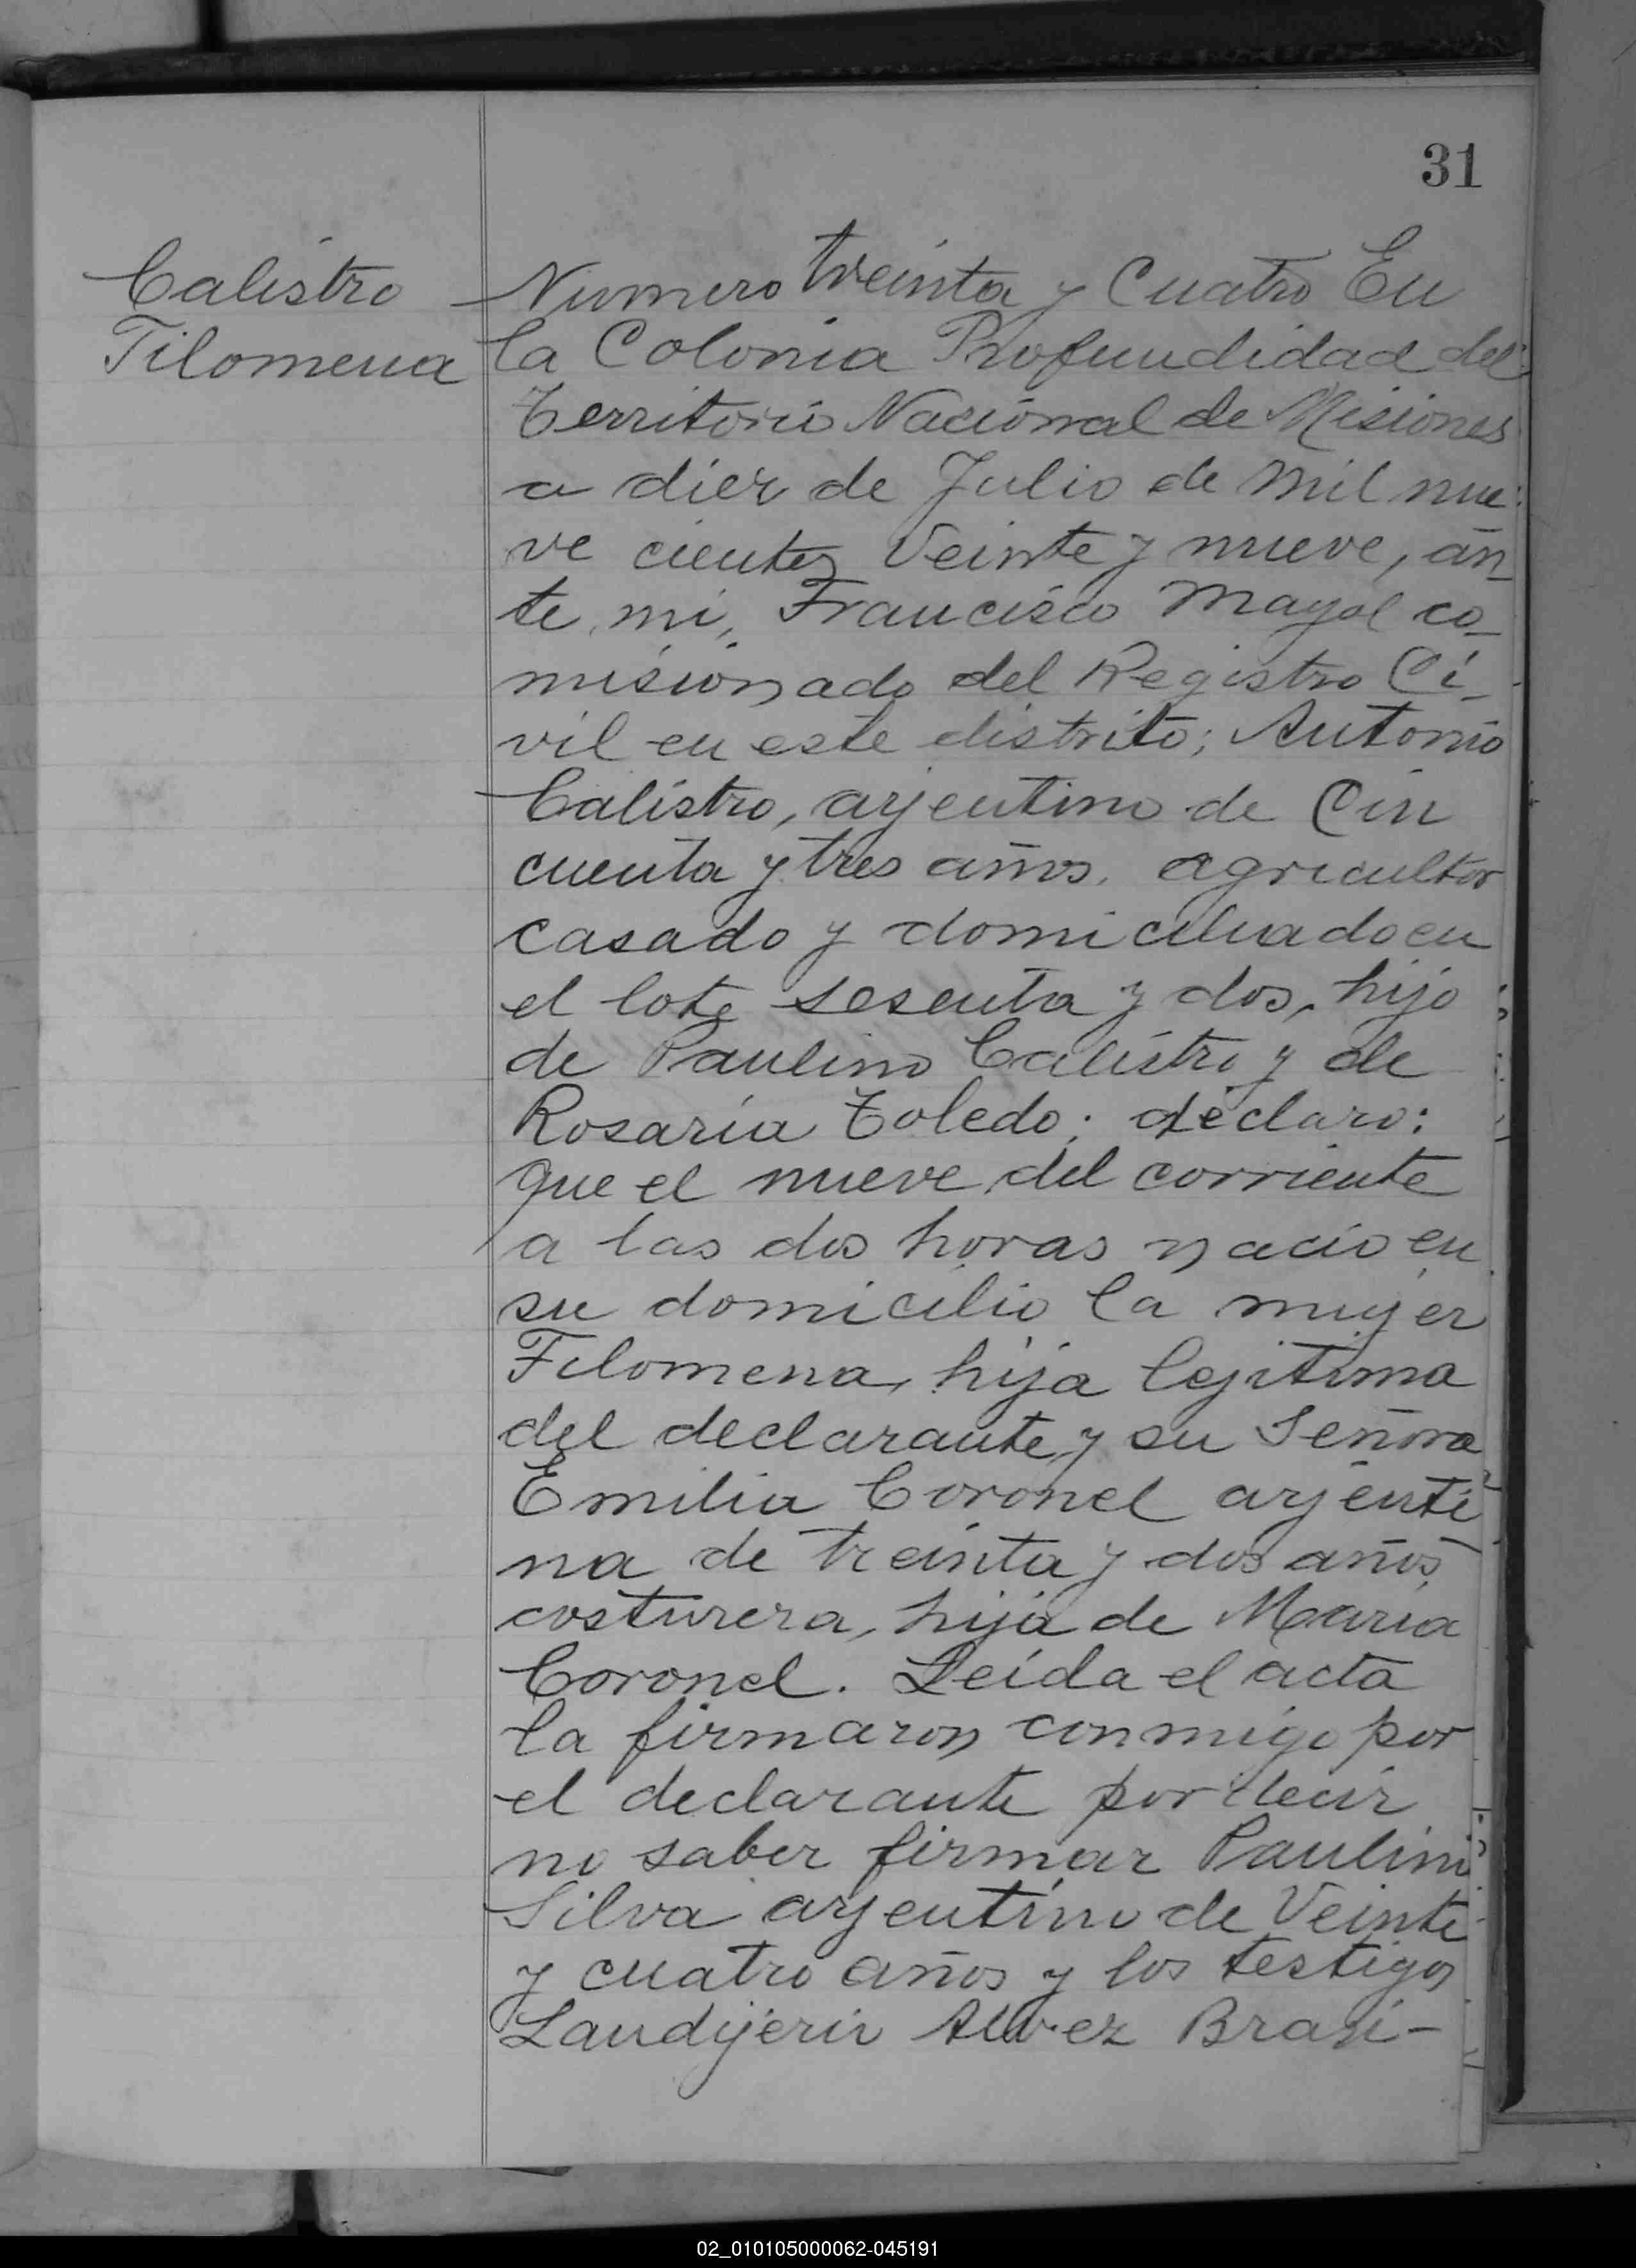 31
Calistro
Filomena
Numero treinta y Cuatro En
la Colonia Profundidad del
Territorio Nacional de Misiones
a diez de Julio de mil nue
ve cientos Veinte y nueve, an
te mi, Francisco Mayol co
misionado del Registro Ci
vil en este distrito; Antonio
Calistro, arjentino de Cin
cuenta y tres años, agricultor
casado y domiciliado en
el lote sesenta y dos, hijo
de Paulino Calistro y de
Rosaria Toledo; declaro:
que el nueve del corriente
a las dos horas nacio en
su domicilio la mujer
Filomena, hija lejitima
del declarante y su Señora
Emilia Coronel arjenti
na de treinta y dos años,
costurera, hija de Maria
Coronel. Leida el acta
la firmaron conmigo por
el declarante por decir
no saber firmar Paulino
Silva arjentino de Veinte
y cuatro años y los testigos
Alvez Brasi-
02_010105000062-045191